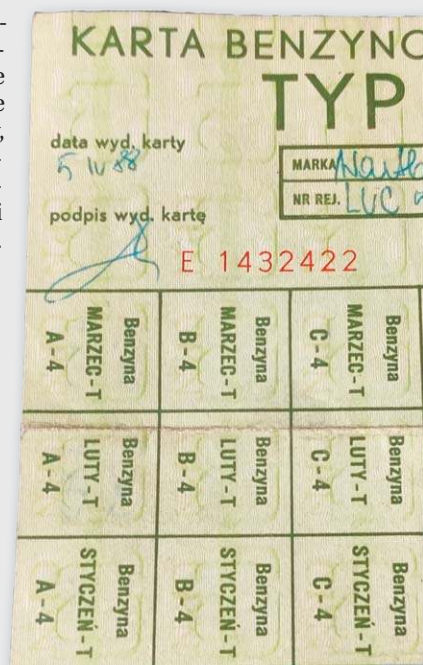 KARTA BENZYNO
TYP
data wyd. karty
5 IV 88
MARKA
NR REJ. LUC
podpis wyd. kartę
E 1432422
Benzyna
MARZEC-T
A-4
Benzyna
MARZEC-T
B-4
Benzyna
MARZEC-T
C-4
Benzyna
LUTY-T
A-4
Benzyna
LUTY-T
B-4
Benzyna
LUTY-T
C-4
Benzyna
STYCZEŃ-T
A-4
Benzyna
STYCZEŃ-T
B-4
Benzyna
STYCZEŃ-T
C-4